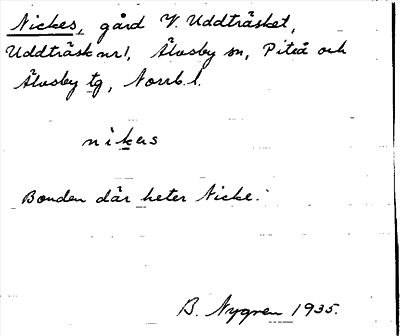 Nickes, gård V. Uddträsket,
Uddträsk nr 1, Älvsby sn, Piteå och
Älvsby tg, Norrb. l.
nikers
Bonden där heter Nicke.
B. Nygren 1935.